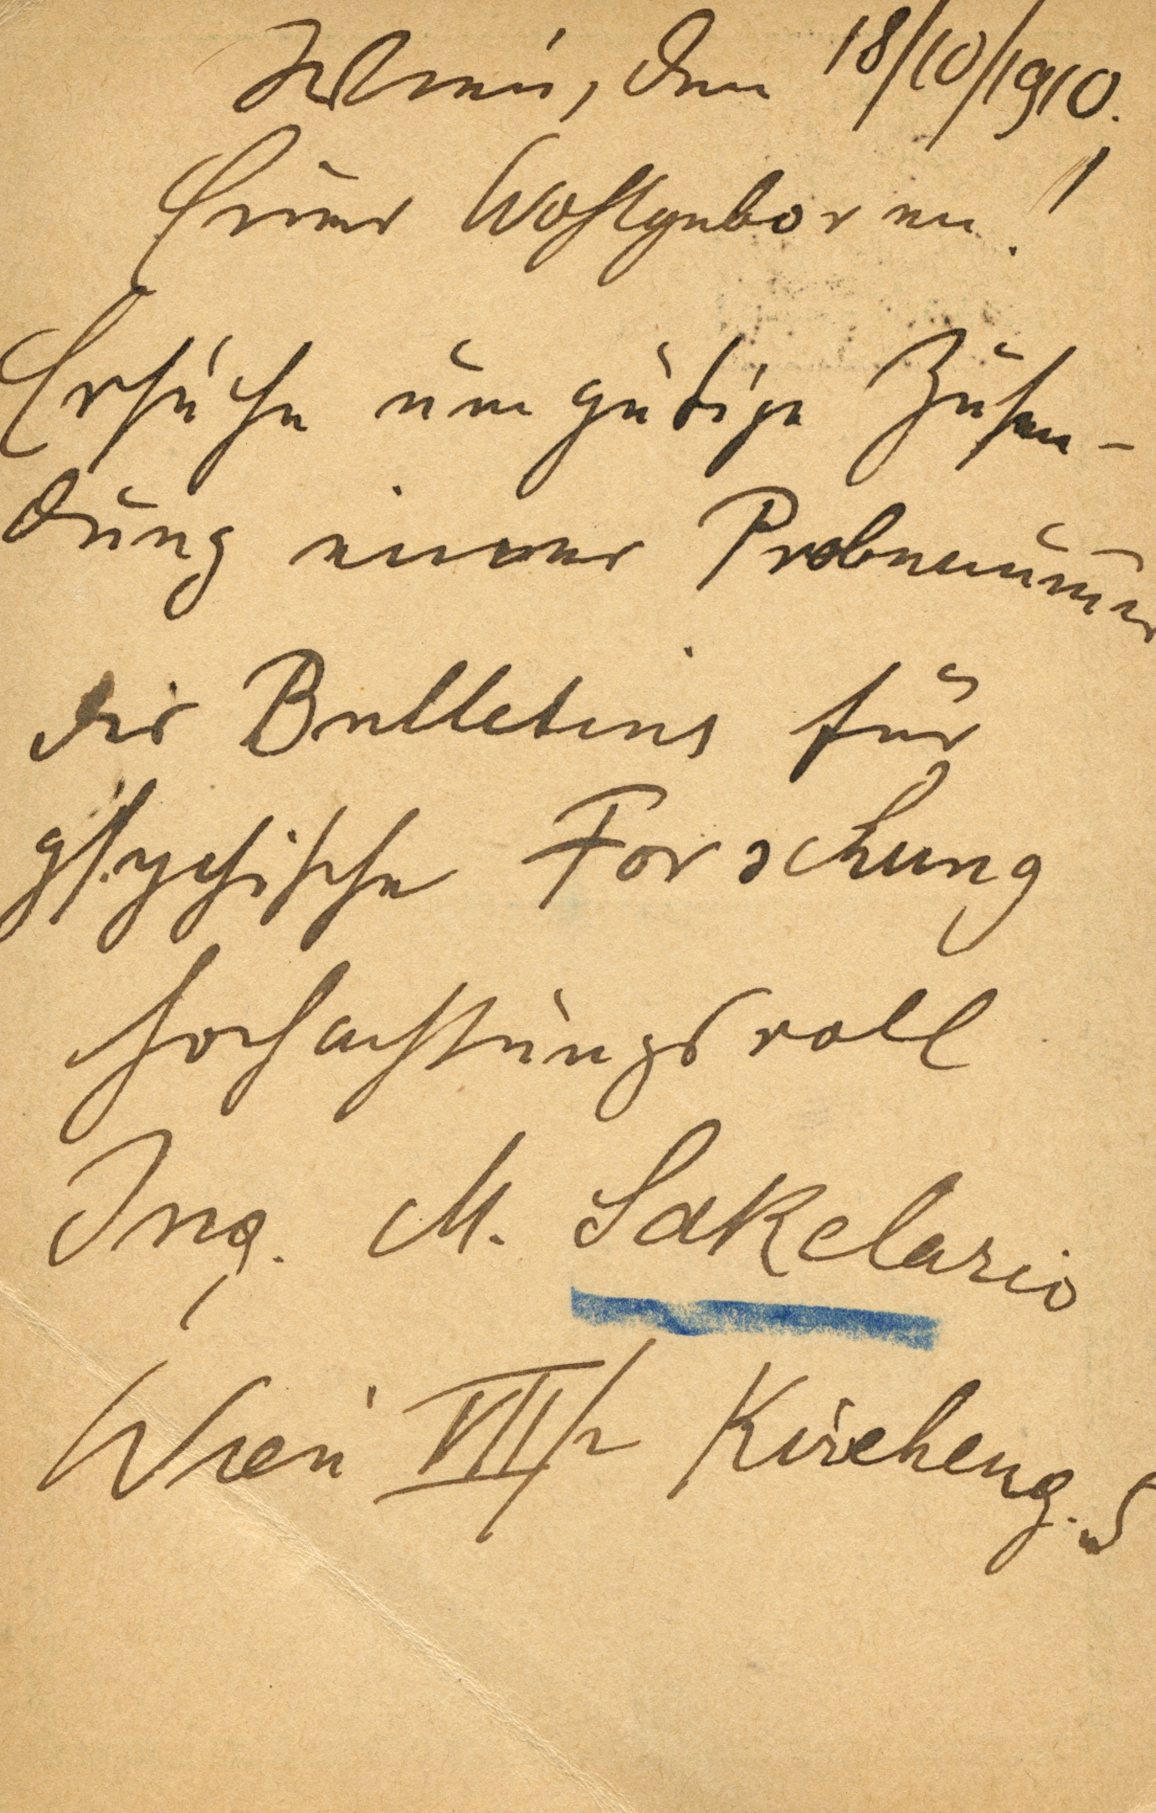 Wien, den 18/10/1910.
Euer Wohlgeboren!
Ersuche um gütige Zusen-
dung einer Probenum̄er
der Bulletins für
psychische Forschung
Hochachtungsvoll
Ing. M. Sakelario
Wien VII/2 Kircheng. 5